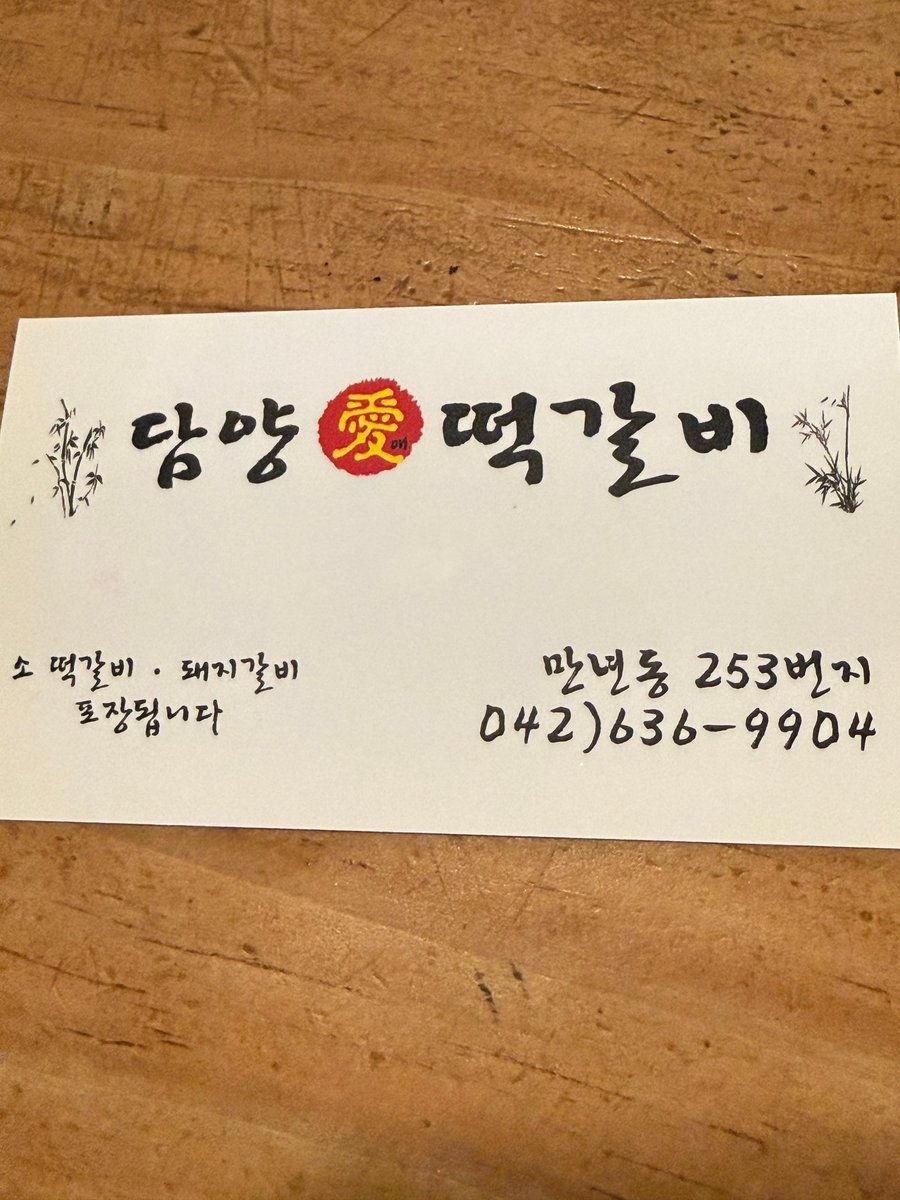 담양 愛애 떡갈비
소 떡갈비 · 돼지갈비
포장됩니다
만년동 253번지
042)636-9904